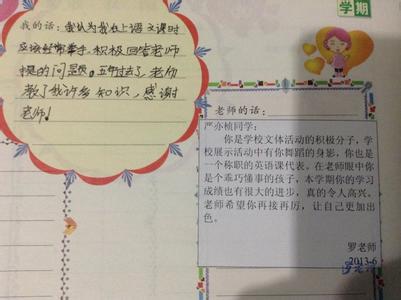 学期
我的话：我认为我在上语文课时
应该经常举手，积极回答老师
提的问题。五年过去了，老师
教了我许多知识，感谢
老师！
老师的话：
严亦桢同学：
你是学校文体活动的积极分子，学
校展示活动中有你舞蹈的身影，你也是
一个称职的英语课代表。在老师眼中你
是个乖巧懂事的孩子，本学期你的学习
成绩也有很大的进步，真的令人高兴。
老师希望你再接再厉，让自己更加出
色。
罗老师
2013-6